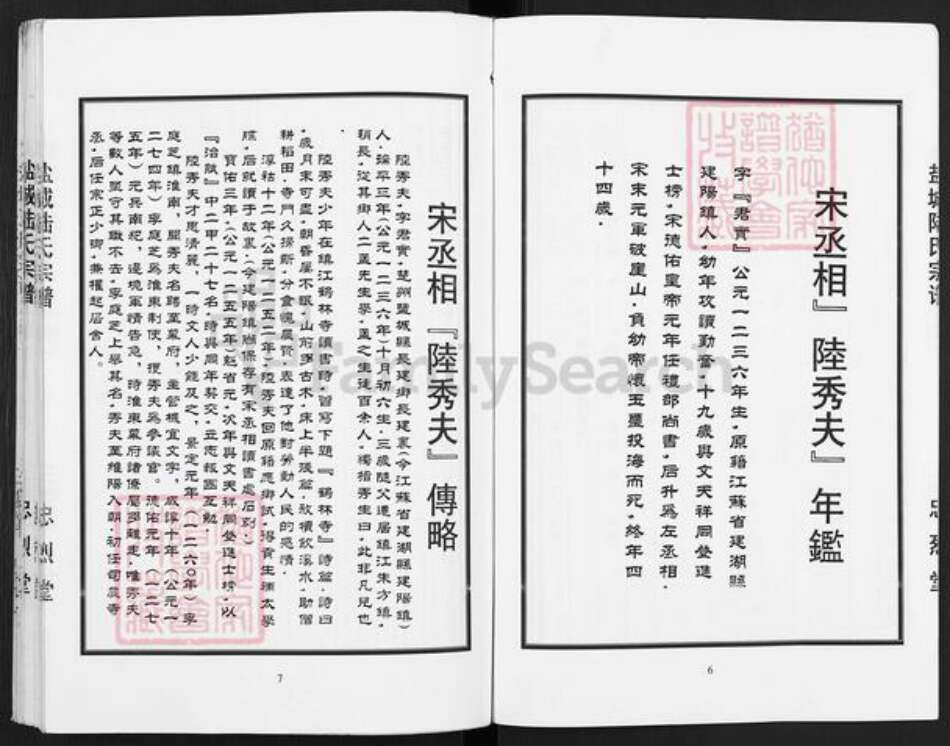 宋丞相』陸秀夫』年鑑
字『君實』公元一二三六年生，原籍江蘇省建湖縣
建陽鎮人，幼年攻讀勤奮，十九歲與文天祥同登進
士榜，宋德佑皇帝元年任禮部尚書，后升爲左丞相，
宋末元軍破崖山，負幼帝懷玉璽投海而死，終年四
十四歲。
6
宋丞相『陸秀夫』傳略
陸秀夫，字君實，楚州鹽城縣長建鄉長建裏(今江蘇省建湖縣建陽鎮)
人，端平三年(公元一二三六年)十月初六生，三歲隨父遷居鎮江朱方鎮，
稍長，從其鄉人二孟先生學，孟之生徒百余人，獨指秀生曰，此非凡兒也
。
陸秀夫少年在鎮江鶴林寺讀書時，曾寫下題『鶴林寺』詩篇，詩曰
，歲月未可盡，朝昏屢不眠，山前多古木，床上半殘篇，放犢飲溪水，助僧
耕稻田，寺門久掃斯，分食愧農賢，表達了他對勞動人民的感情。
淳祜十二年(公元一二五二年)，陸秀夫回原籍應鄉試，得貢生補太學
牒，后就讀于故裏，(今建陽鎮尚保存有宋丞相讀書處石刻)。
寶佑三年，(公元一二五五年)魁省元，次年與文天祥同登進士榜，以
『治賦』中二甲二十七名，時與同年契交，立志報國互勉。
陸秀夫才思清麗，一時文人少能及之，景定元年(一二六〇年)李
庭芝鎮淮南，聞秀夫名辟至幕府，主管機宜文字，咸淳十年，(公元一
二七四年)李庭芝爲淮東制使，擢秀夫爲參議官。德佑元年(一二七
五年)元兵南犯，邊境軍情告急，時淮東幕府諸僚屬多難走，唯秀夫
等數人堅守其職不去，李庭芝上舉其名，秀夫至維陽入朝，初任司農寺
丞，后任宗正少卿，兼權起居舍人。
7
盐城陆氏宗谱
忠烈堂
FamilySearch